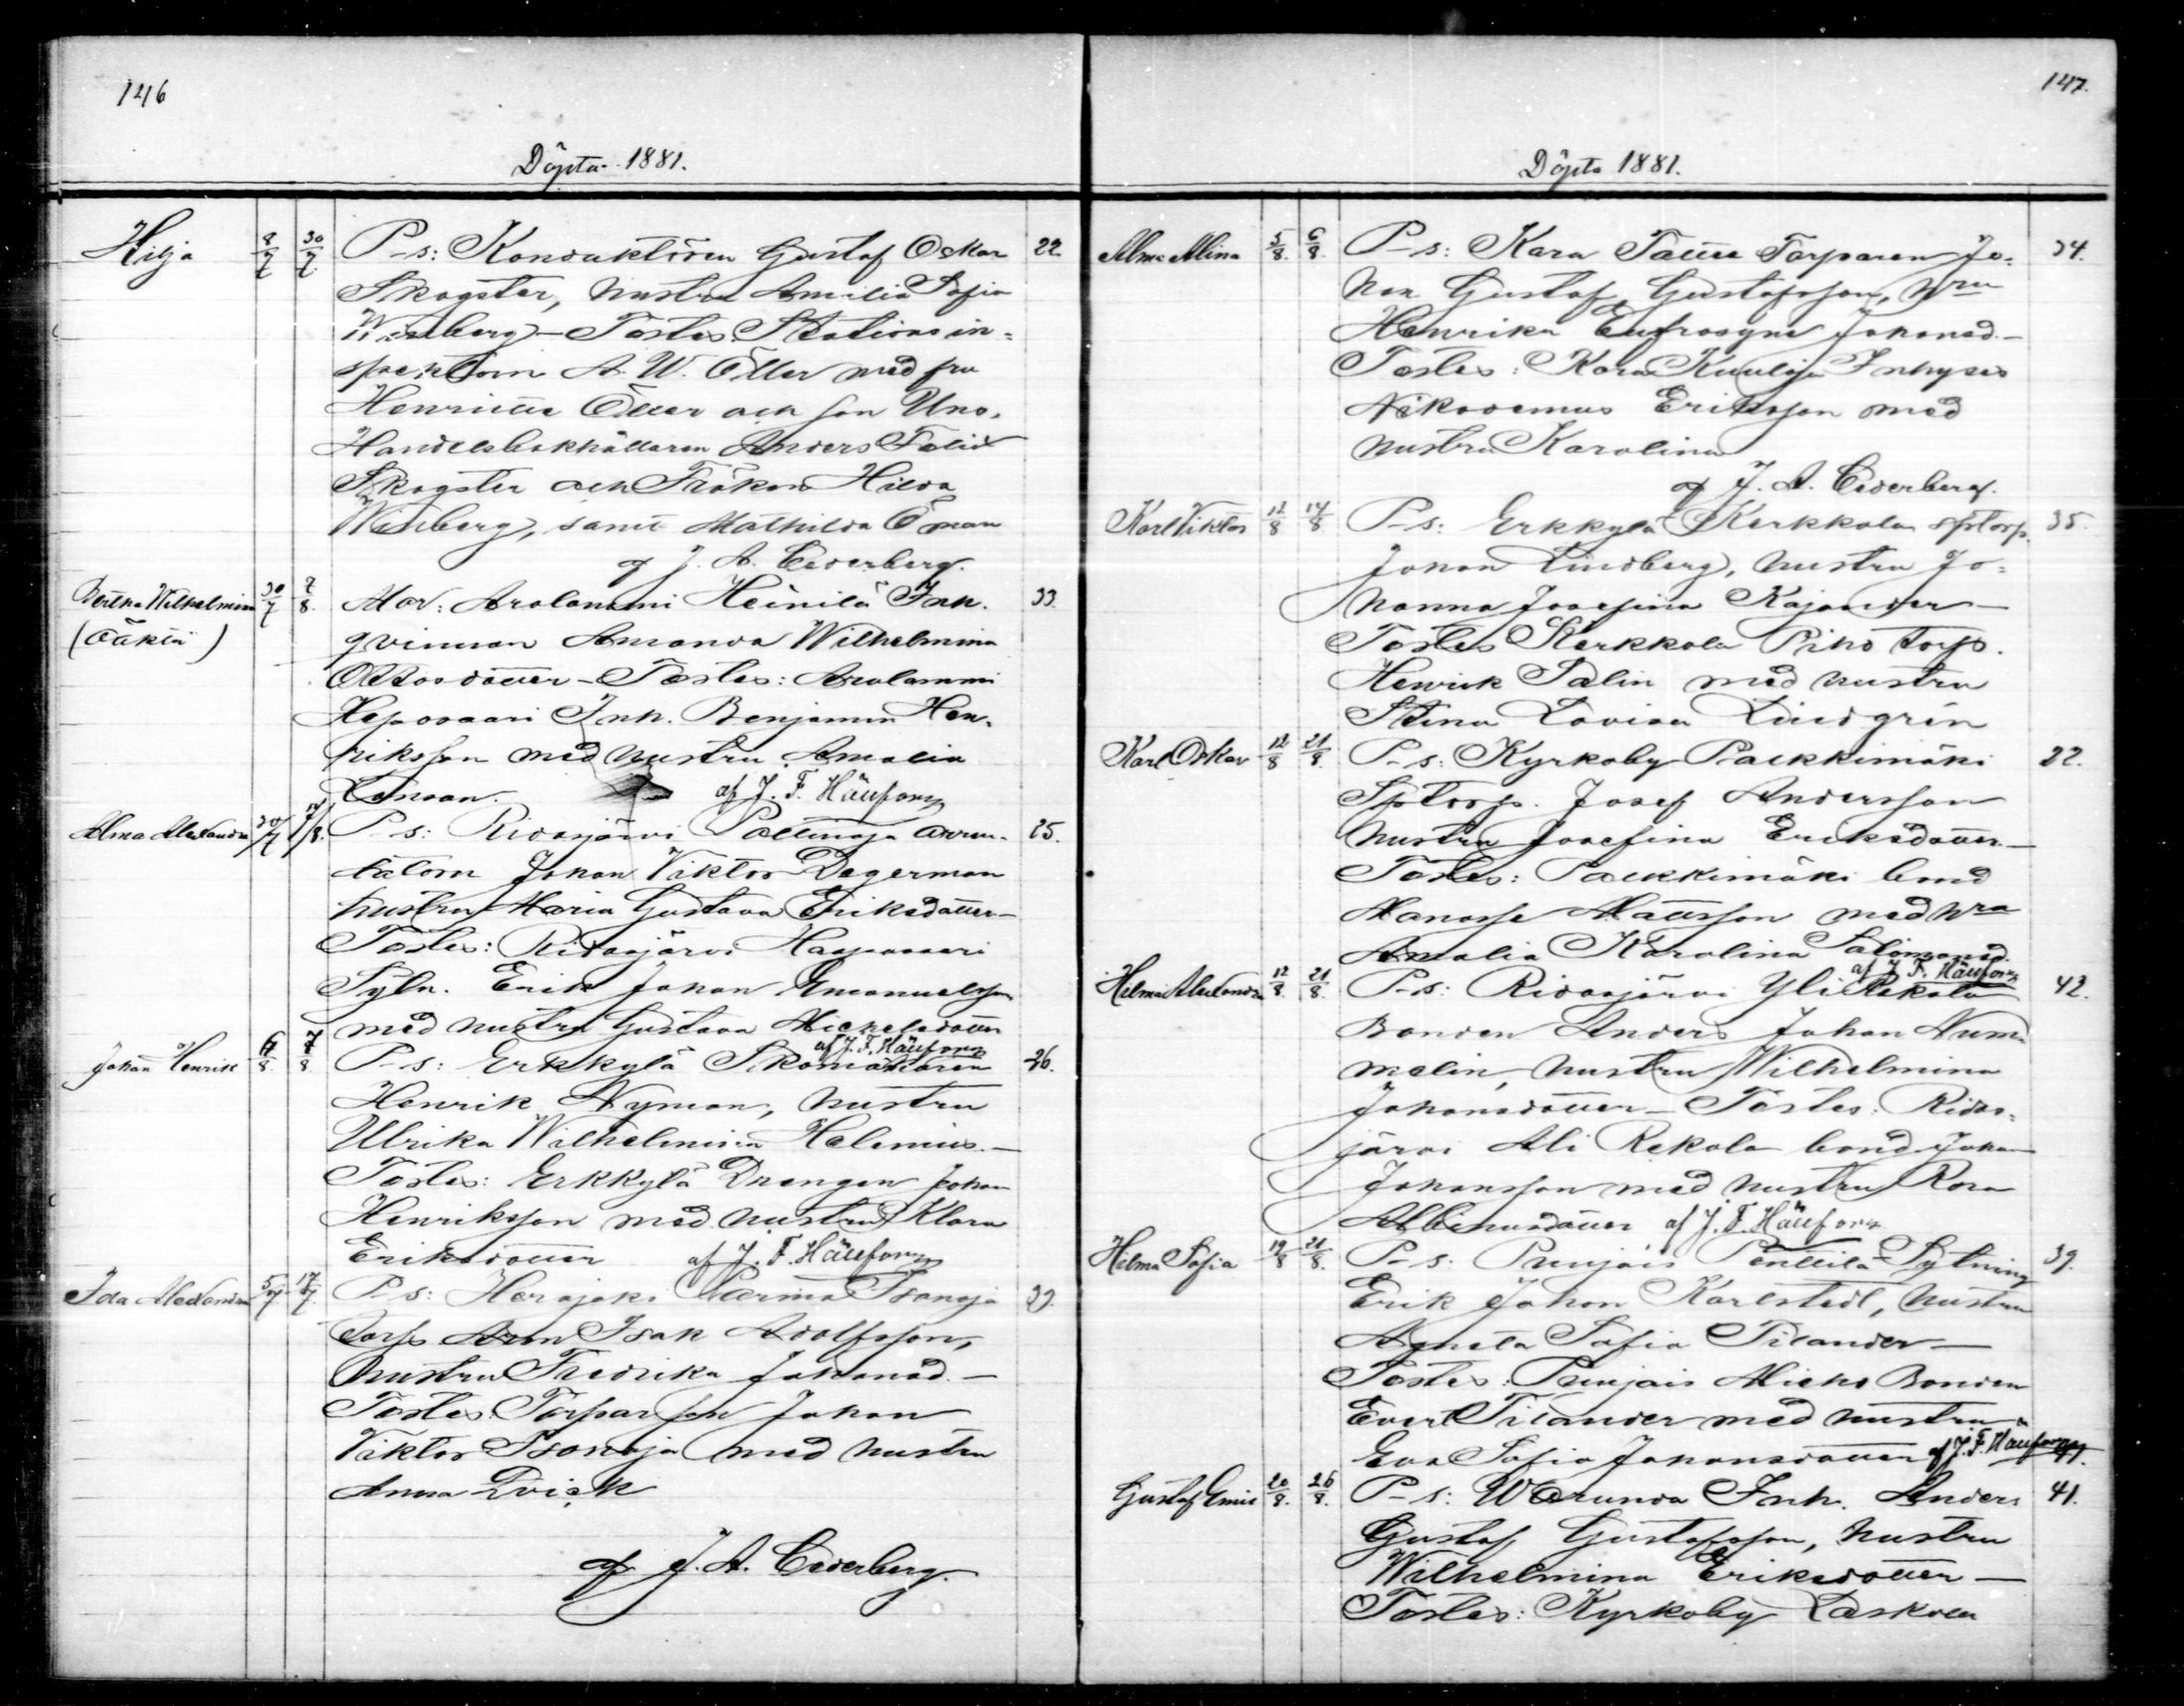 146
Döpta 1881.
Hilja 8/7 30/7 P-s: Konduktören Gustaf Oskar 22
Skogster, hustru Amilia Sofia
Winberg - Testes Stationsin-
spektorn A. W. Öller med fru
Henriette Öller och son Uno,
Handelsbokhållaren Anders Felix
Skogster och Fröken Hilda
Winberg, samt Mathilda Öman
af J. A. Cederberg.
Bertha Wilhelmina 30/7 7/8 Mor: Arolammi Heinilä Inh. 33.
(Oäkta) qvinnan Amanda Wilhelmina
Ottosdotter - Testes: Arolammi
Heposaari Inh. Benjamin Hen-
riksson med hustru Amalia
af J. F. Hällfors
Alma Alexandra 30/7 14/8 P-s: Ridasjärvi Paltinoja arren- 25.
datorn Johan Viktor Degerman
hustru Maria Gustava Eriksdotter -
Testes: Ridasjärvi Haaposaari
Sytn. Erik Johan Emanuelsson
med hustru Gustava Michelsdotter
af J. F. Hällfors
Johan Henrik 6/8 7/8 P-s: Erkkylä Skomakaren 26.
Henrik Nyman, hustru
Ulrika Wilhelmina Helenius. -
Testes: Erkkylä Drengen Johan
Henriksson med hustru Klara
Eriksdotter af J. F. Hällfors
Ida Alexandra 5/7 17/7 P-s: Herajoki Parma Isonoja 39.
torp Aron Isak Adolfsson,
hustru Fredrika Johansd. -
Testes: Torparson Johan
Viktor Isonoja med hustru
Anna Qvick
af J. A. Cederberg.
147.
Döpta 1881.
Alma Alina 5/8. 6/8. P-s: Kara Torparen Jo- 34.
han Gustaf Gustafsson, hru
Henrika Eufrosyne Johansd. -
Testes: Kara Kuuloja Inhyses
Nikodemus Eriksson med
hustru Karolina
af J. A. Cederberg.
Karl Viktor 12/8 14/8 P-s: Erkkylä Kerkkola sptorp. 35.
Johan Lindberg, hustru Jo-
hanna Josefina Kajander -
Testes Kerkkola Piho torp.
Henrik Salin med hustru
Stina Lovisa Lindgrén
Karl Oskar 12/8 21/8. P-s: Kyrkoby Palkkimäki 22.
Sptorp. Josef Andersson
hustru Josefina Eriksdotter -
Testes: Palkkimäki bond
Manasse Mattsson med hru
Amalia Karolina Salomonsd.
af J. F. Hällfors
Helmi Alexandra 12/8. 21/8. P-s: Ridasjärvi Yli Rekola 42.
Bonden Anders Johan Num-
melin, hustru Wilhelmina
Johansdotter - Testes: Ridas-
järvi Ali Rekola bond Johan
Johansson med hustru Rosa
Albinusdotter af J. F. Hällfors
Hilma Sofia 19/8 21/8. P-s: Punjais Penttilä Sytning 39.
Erik Johan Karlstedt, hustru
Agneta Sofia Tilander -
Testes: Punjais Micko Bonden
Evert Tilander med hustru
Eva Sofia Johansdotter af J. F. Hällfors
Gustaf Emil 20/8. 26/8. P-s: Warunda Inh. Anders 41.
Gustaf Gustafsson, hustru
Wilhelmina Eriksdotter -
Testes: Kyrkoby Laskola